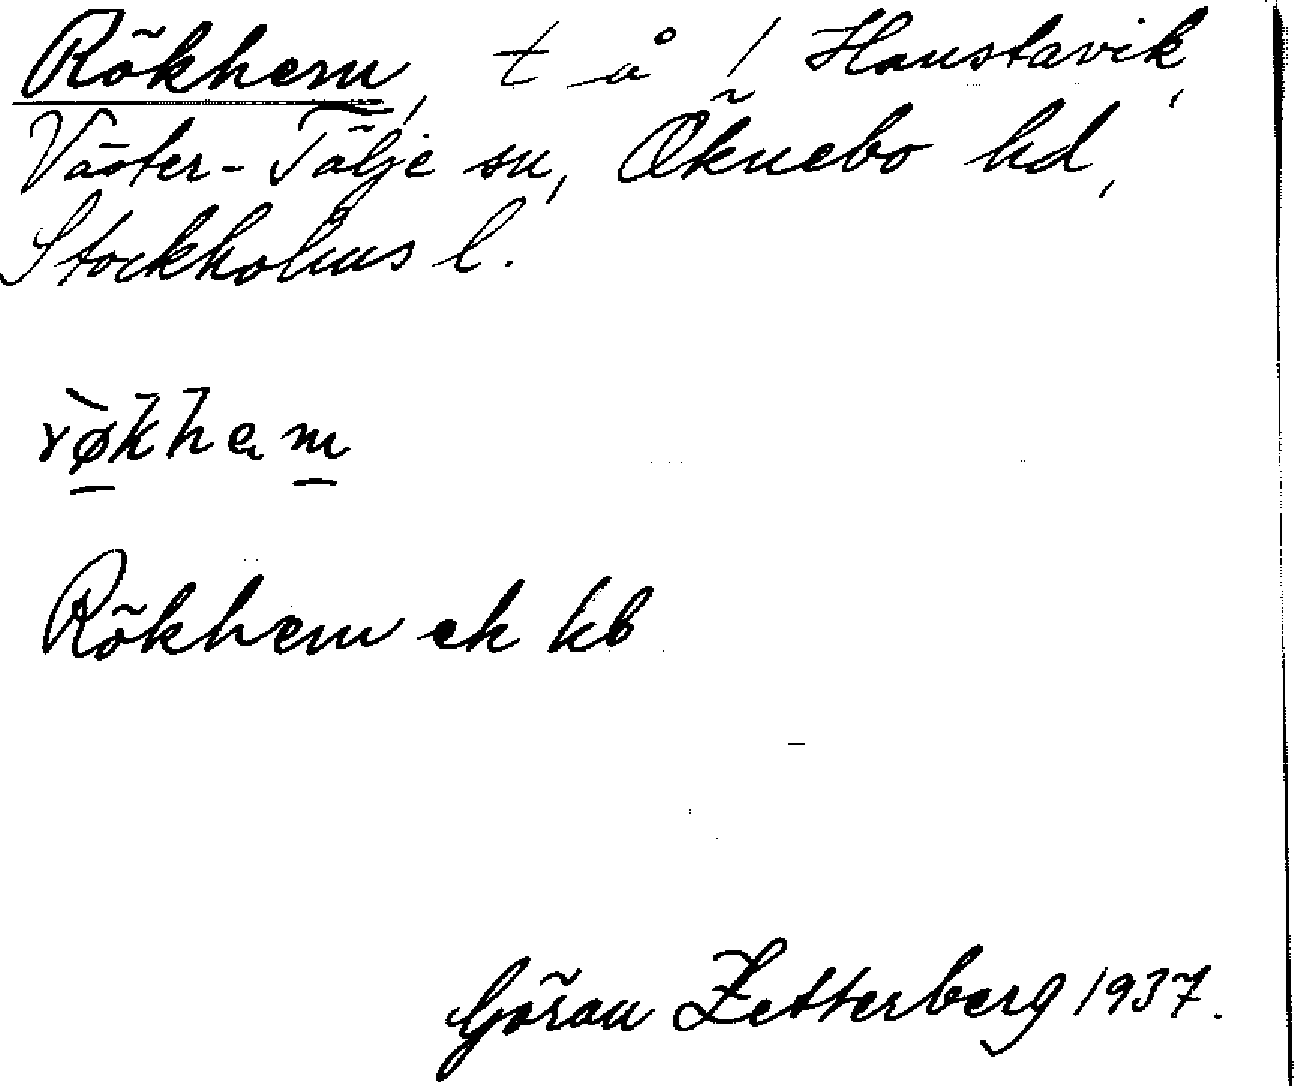 Rökhem, t å / Haustavik,
Väster-Tälje sn, Öknebo hd,
Stockholms l.
rø̀kham
Rökhem ek kb
Göran Zetterberg 1937.